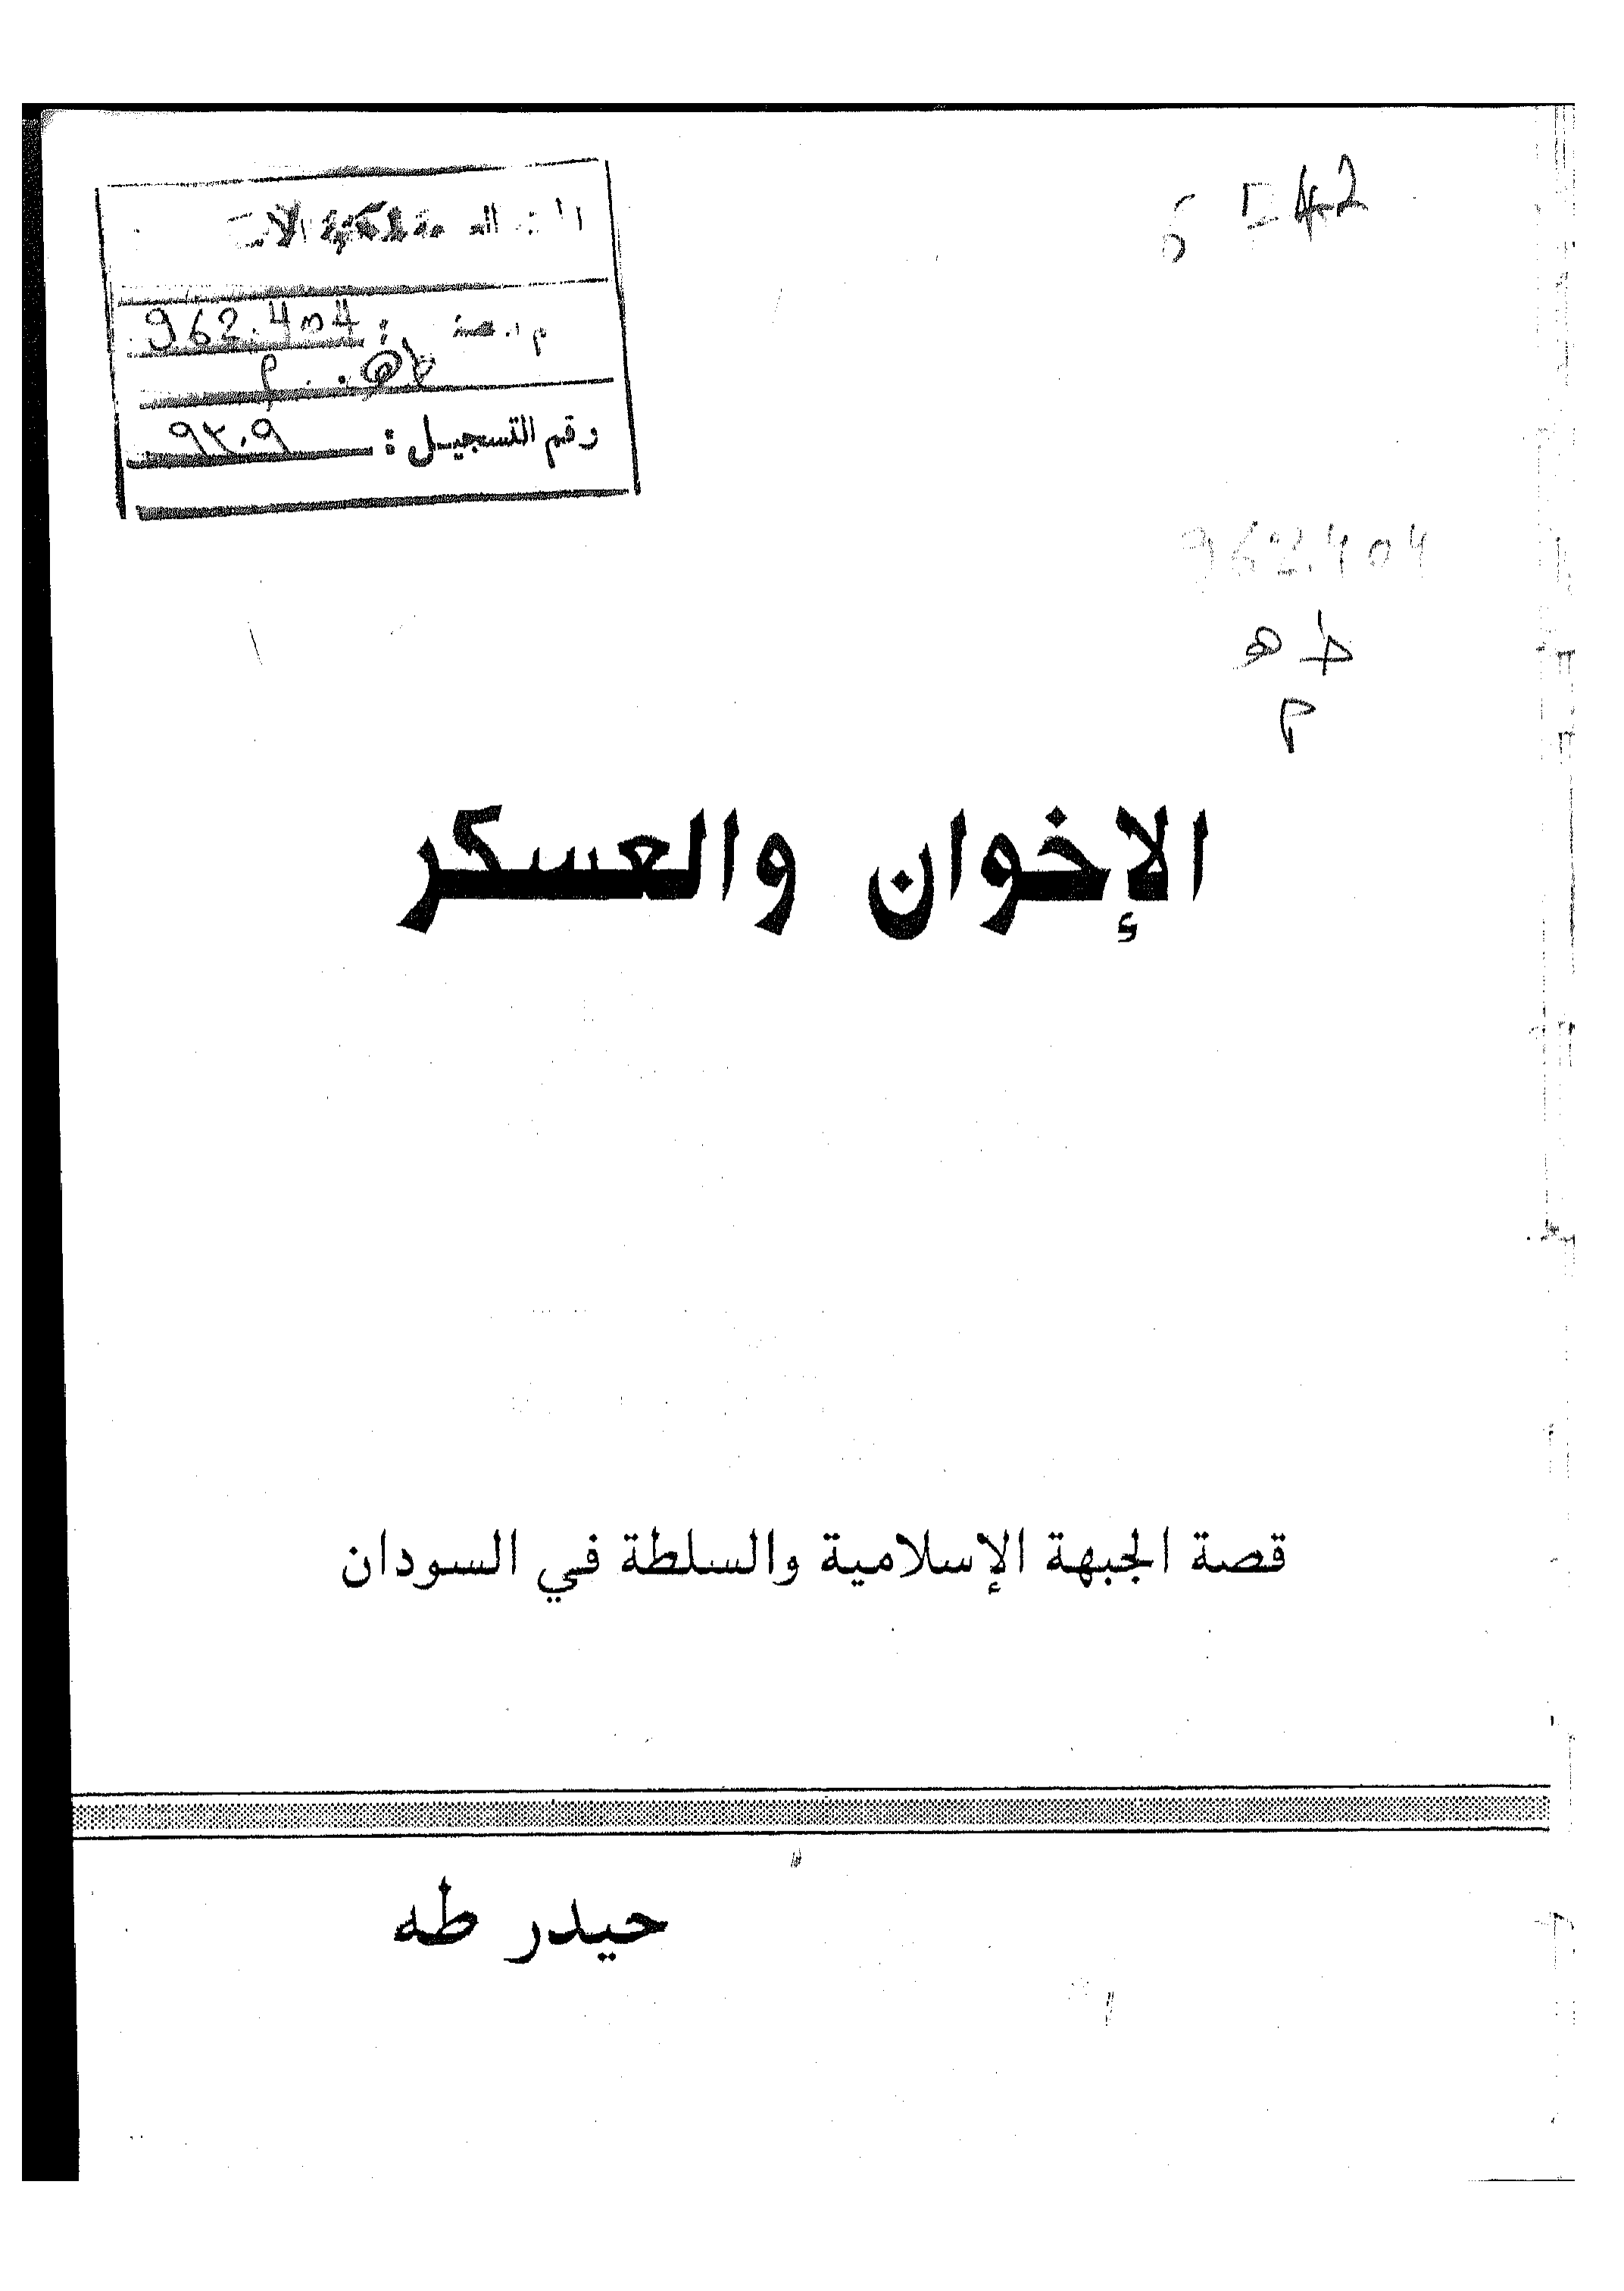 962.404
رقم التسجيل : ٩٣٠٩
I 42
962.404
ط ه
م
الإخوان والعسكر
قصة الجبهة الإسلامية والسلطة في السودان
حيدر طه